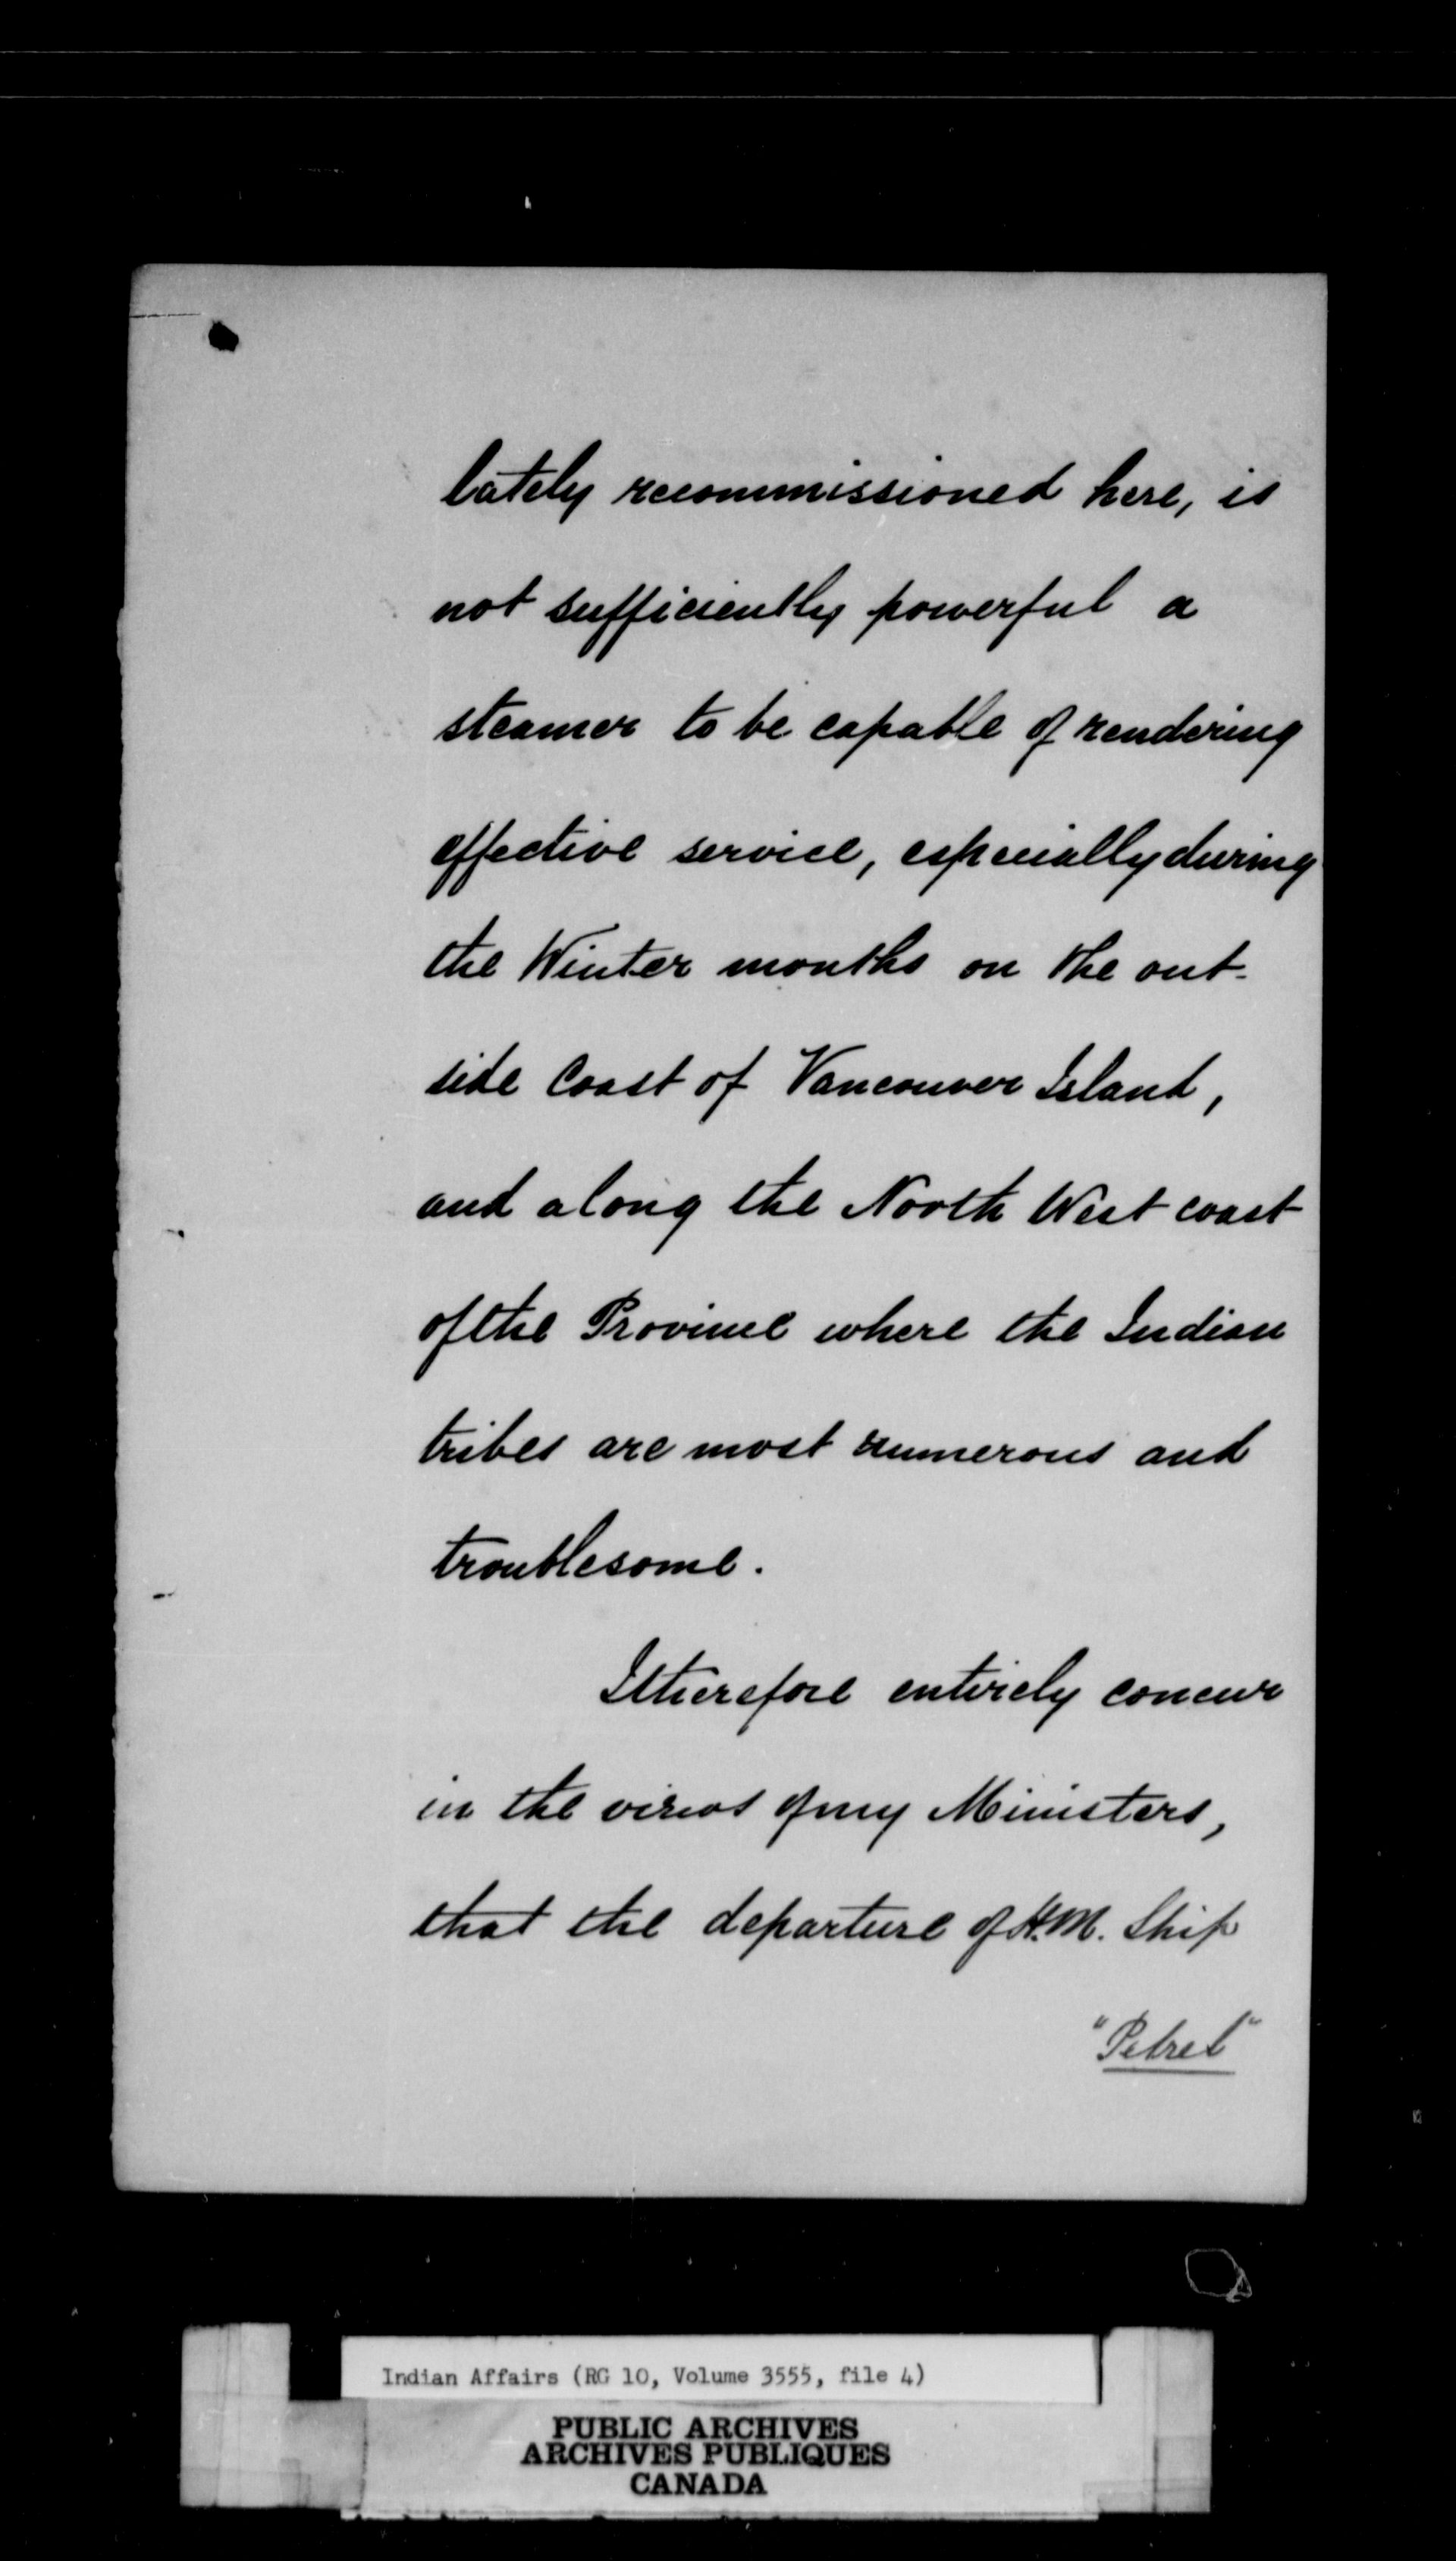 lately recommissioned here, is
not sufficiently powerful a
steamer to be capable of rendering
effective service, especially during
the Winter months on the out-
side Coast of Vancouver Island,
and along the North West coast
of the Province where the Indian
tribes are most numerous and
troublesome.
I therefore entirely concur
in the views of my Ministers,
that the departure of H.M. Ship
"Petrel"
Indian Affairs (RG 10, Volume 3555, file 4)
PUBLIC ARCHIVES
ARCHIVES PUBLIQUES
CANADA